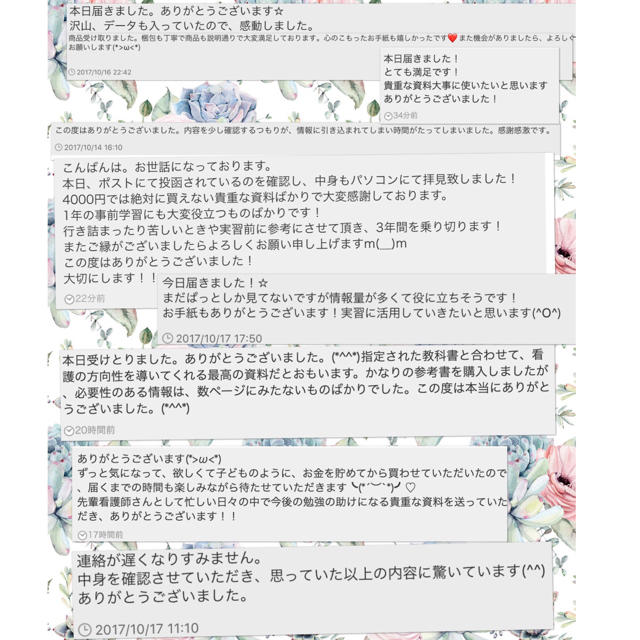 本日届きました。ありがとうございます☆
沢山、データも入っていたので、感動しました。
商品受け取りました。梱包も丁寧で商品も説明通りで大変満足しております。心のこもったお手紙も嬉しかったです❤また機会がありましたら、よろしく
お願いします(*>ω<*)
2017/10/16 22:42
本日届きました！
とても満足です！
貴重な資料大事に使いたいと思います
ありがとうございました！
34分前
この度はありがとうございました。内容を少し確認するつもりが、情報に引き込まれてしまい時間がたってしまいました。感謝感激です。
2017/10/14 16:10
こんばんは。お世話になっております。
本日、ポストにて投函されているのを確認し、中身もパソコンにて拝見致しました！
4000円では絶対に買えない貴重な資料ばかりで大変感謝しております。
1年の事前学習にも大変役立つものばかりです！
行き詰まったり苦しいときや実習前に参考にさせて頂き、3年間を乗り切ります！
またご縁がございましたらよろしくお願い申し上げますm(__)m
この度はありがとうございました！
大切にします！！
22分前
今日届きました！☆
まだぱっとしか見てないですが情報量が多くて役に立ちそうです！
お手紙もありがとうございます！実習に活用していきたいと思います(^O^)
2017/10/17 17:50
本日受けとりました。ありがとうございました。(*^^*)指定された教科書と合わせて、看
護の方向性を導いてくれる最高の資料だとおもいます。かなりの参考書を購入しましたが
、必要性のある情報は、数ページにみたないものばかりでした。この度は本当にありがと
うございました。(*^^*)
20時間前
ありがとうございます(*>ω<*)
ずっと気になって、欲しくて子どものように、お金を貯めてから買わせていただいたので
、届くまでの時間も楽しみながら待たせていただきます╰(*´︶`*)╯♡
先輩看護師さんとして忙しい日々の中で今後の勉強の助けになる貴重な資料を送っていた
だき、ありがとうございます！！
17時間前
連絡が遅くなりすみません。
中身を確認させていただき、思っていた以上の内容に驚いています(^^)
ありがとうございました。
2017/10/17 11:10